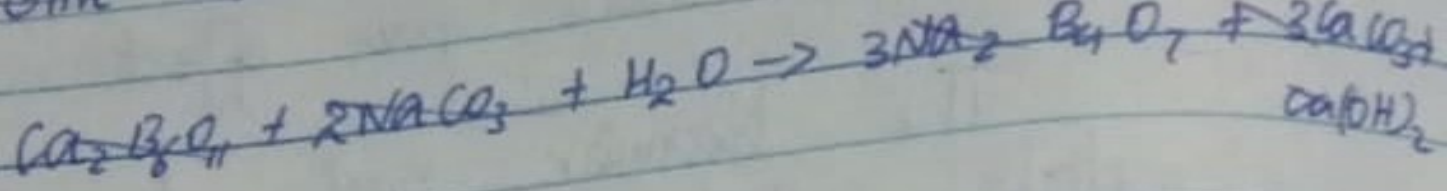 Ca₂B₆O₁₁ + 2NaCO₃ + H₂O → 3Na₂ B₄O₇ + 3CaCO₃+
Ca(OH)₂